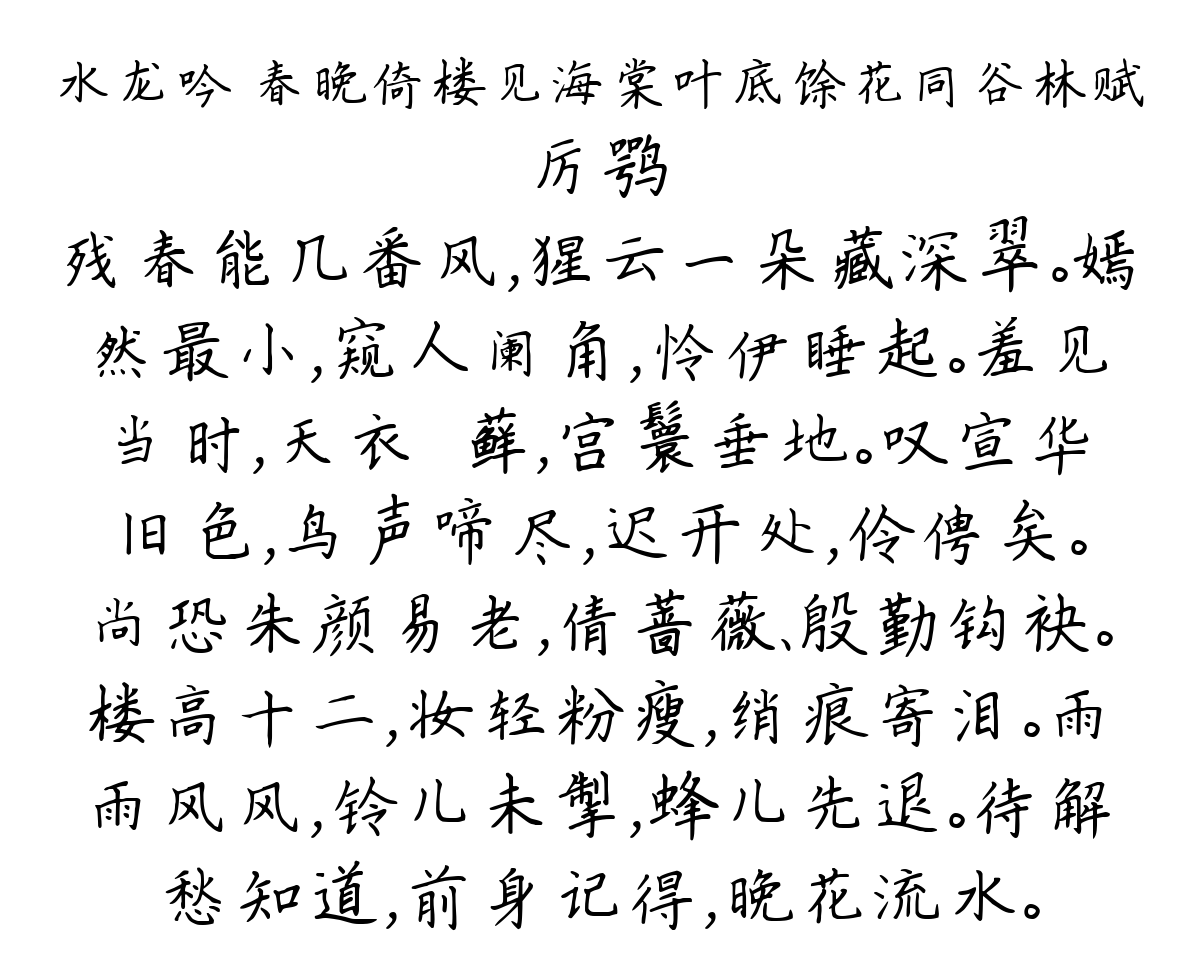 水龙吟 春晚倚楼见海棠叶底馀花同谷林赋
厉鹗
残春能几番风,猩云一朵藏深翠。嫣
然最小,窥人阑角,怜伊睡起。羞见
当时,天衣 藓,宫鬟垂地。叹宣华
旧色,鸟声啼尽,迟开处,伶俜矣。
尚恐朱颜易老,倩蔷薇、殷勤钩袂。
楼高十二,妆轻粉瘦,绡痕寄泪。雨
雨风风,铃儿未掣,蜂儿先退。待解
愁知道,前身记得,晚花流水。